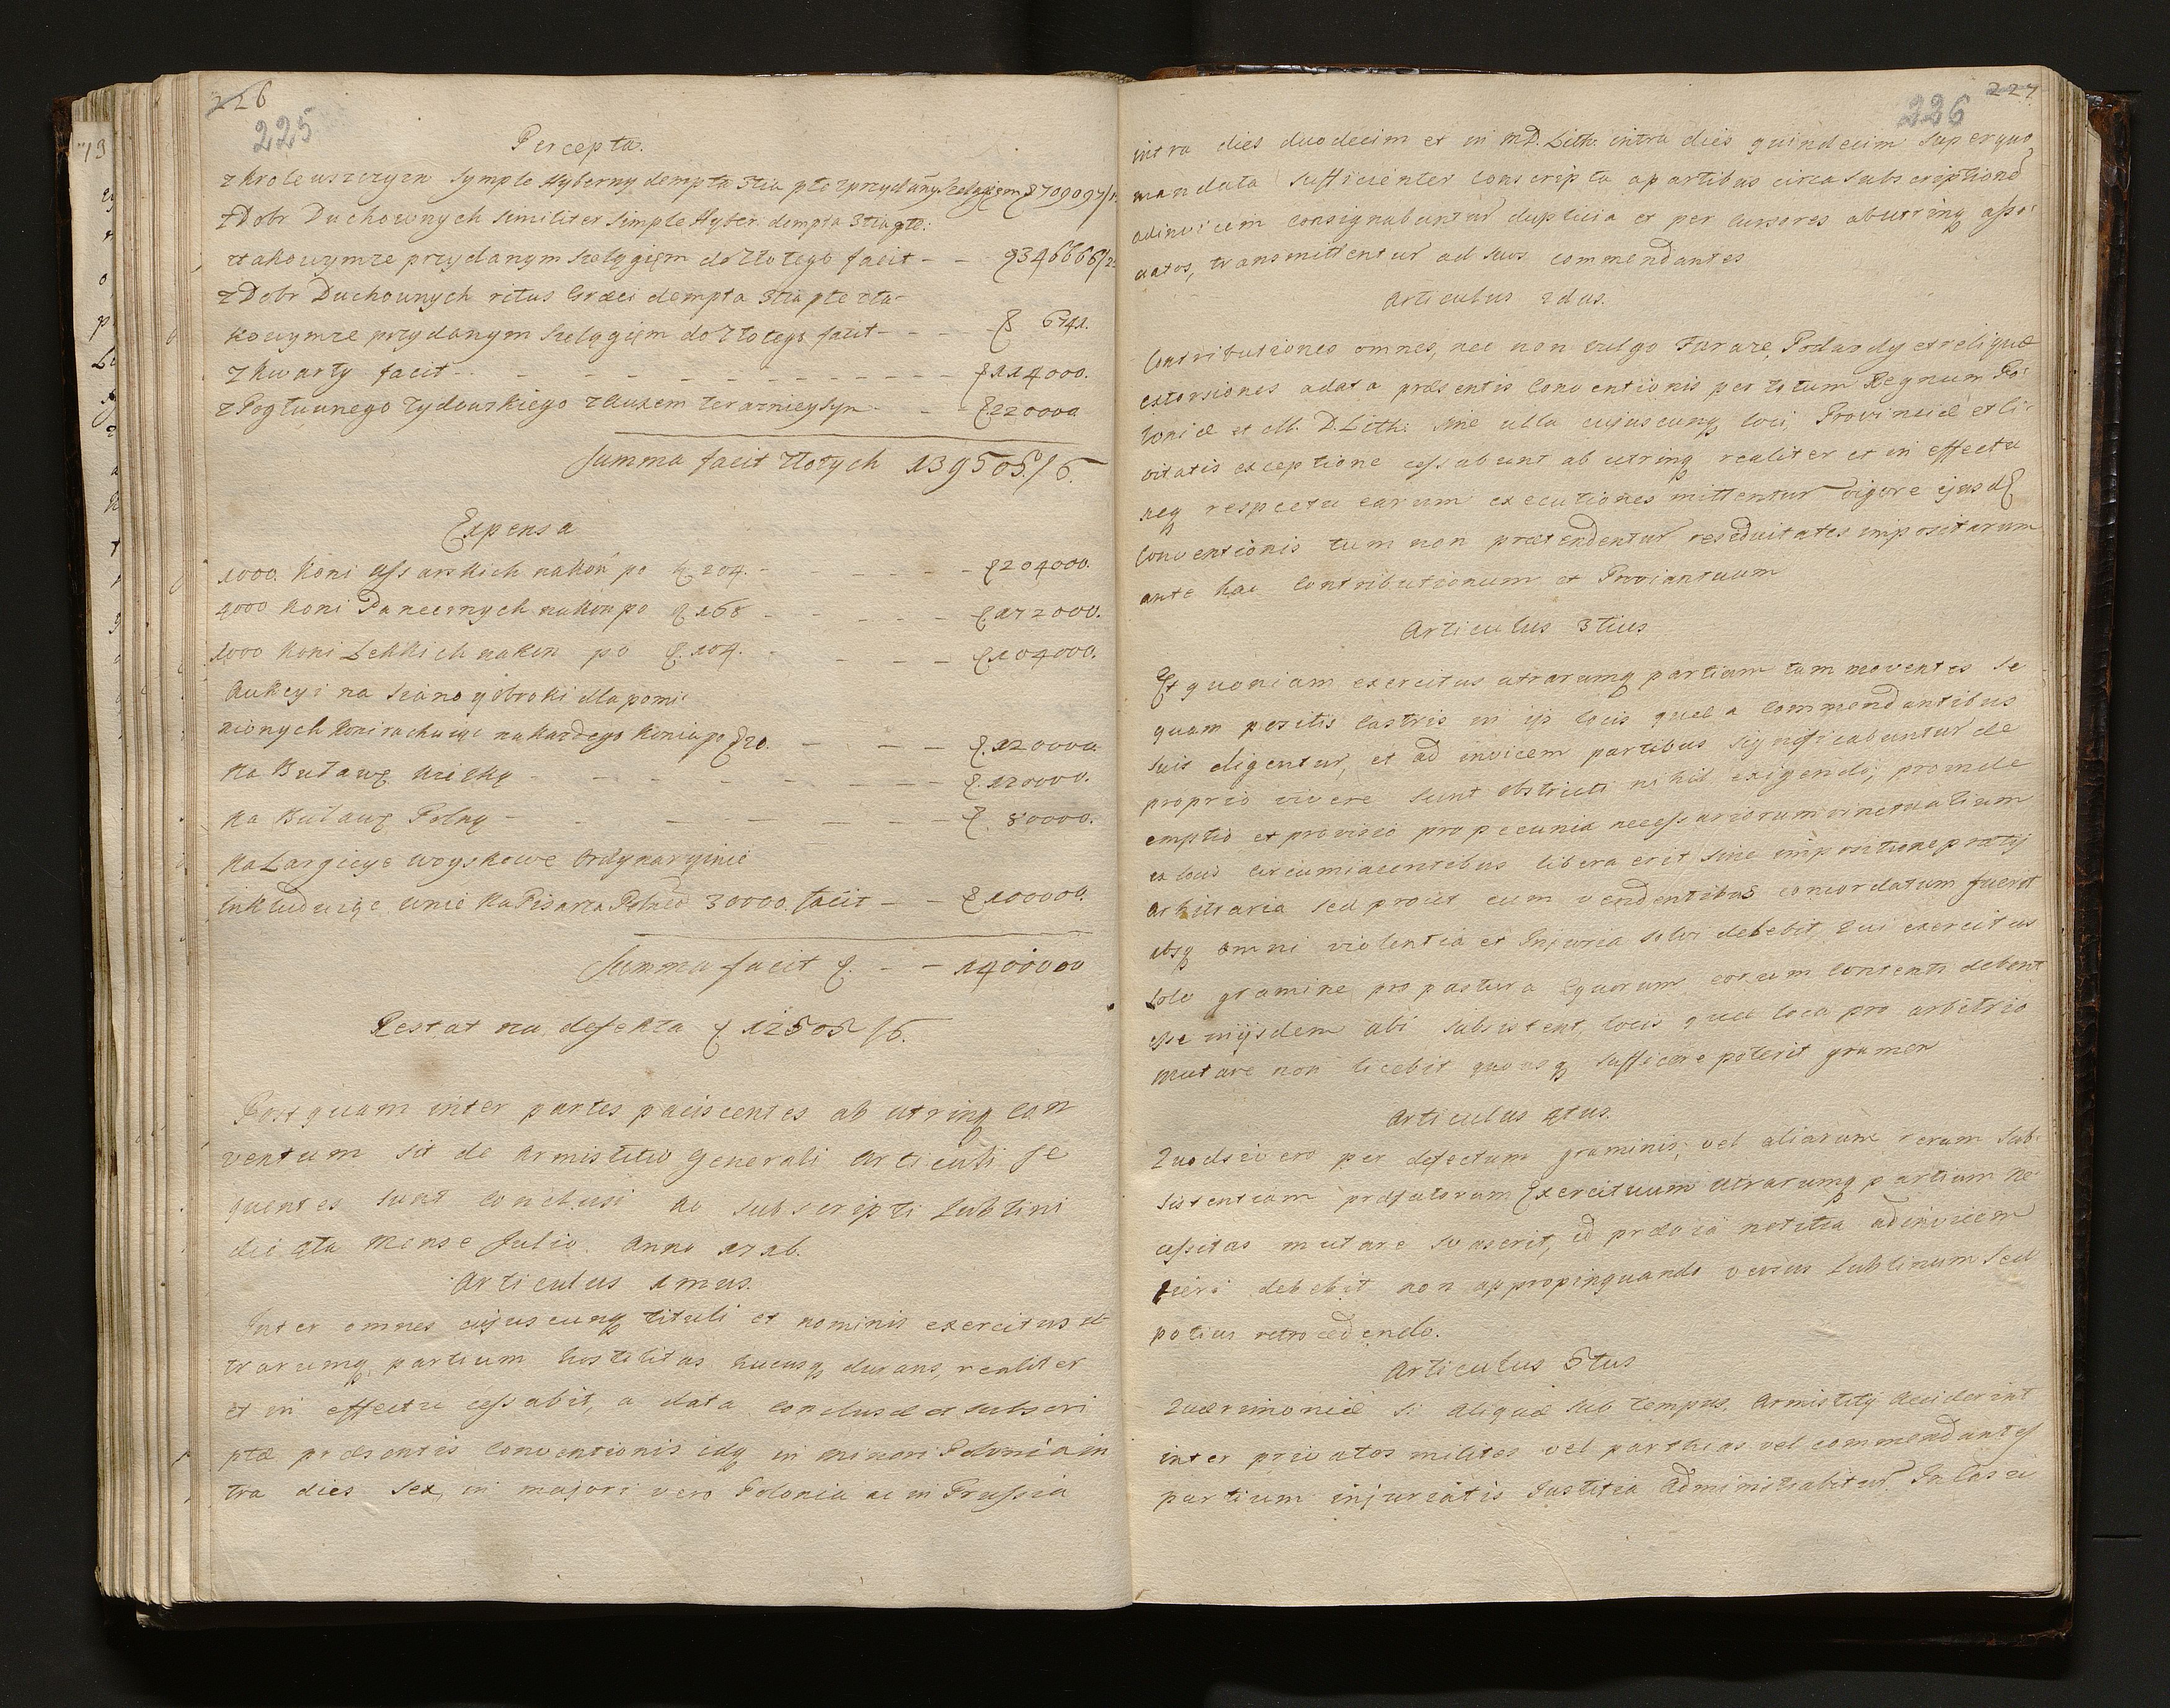 226
225
Percepta.
z Kroleuszczyzn symple Hyberny dempta 3tia pte zprzydany Szelągiem 709097/
z Dobr Duchownych similiter simple Hyber: dempta 3tia pte:
ztakowymze przydanym szelągięm do Złotego facit - - 346666/2
z Dobr Duchownych ritus Græci dempta 3tia pte zta-
kowymze przydanym szelągięm do Złotego facit - - - 6741.
z Kwarty facit - - - - - - - - - - 114000.
z Pogłuunego Zydouskiego z Auxem terazniey syn - - - 220000
Summa facit Złotych 139505/6.
Expensa
1000. Koni Uss arskich nakoń po 204. - - - - - - 204000.
4000 Koni Pancernych nakon po 168 - - - - - 672000.
1000 Koni Lekkich nakon po 104. - - - - - 104000.
Aukcyi na siano y obroki dla pomie
nionych koni rachuiąc nakazdego konia po 20. - - - - 120000.
Na Buławę Wielką - - - - - - - - 120000.
Na Buławę Polną - - - - - - - - 80000.
Na Largicye woyskowe Ordynaryinie
inkluduiąc unie na Pisarza Polneo 30000. facit - - 100000.
Summa facit - - 1400000
Restat na defekta 12505/6.
Postquam inter partes paciscentes ab utrinq con
ventum sit de Armistitio generali Articuli se
quentes sunt conclusi ac subscripti Lublini
die 4ta mense Julio. Anno 1716.
Articulus 1mus.
Inter omnes cujuscunq tituli et nominis exercitus u-
trarumq partium hostilitas hucusq durans, realiter
et in effectu cessabit, a data conclusæ et subscri
ptæ præsentis Conventionis idq in minori Polonia in
tra dies sex, in majori vero Polonia ac in Prussia
227
226
intra dies duodecim et in M.D. Lith: intra dies quindecim superquo
mandata sufficienter conscripta apartibus circa subscriptione
adinvicem consignabuntur duplicia et per cursores aburrinq asso-
uatos, transmittentur ad suos commendantes
Articulus 2dus.
Contributiones omnes, nec non vulgo Furaze, Podwody et reliquæ
extorsiones adata præsentis Conventionis per totum Regnum Po-
loniæ et M. D. Lith: sine ulla cujuscunq loci, Provinciæ et Ci-
vitatis exceptione cessabunt ab utrinq realiter et in effectu
neq respectu earum executiones mittentur vigore ejusd
Conventionis tum non prætendentur residuitates impositarum
ante hac Contributionum et Proviantuum
Articulus 3tius
Et quoniam exercitus utrarumq partium tam moventes se
quam positis Castris in ijs locis quæ a Commendantibus
suis eligentur, et ad invicem partibus significabuntur de
proprio vivere sunt obstricti nihil exigendo; proinde
emptio et provisio pro pecunia necessariorum victualium
ex locis circumiacentibus libera erit sine impositione pretij
arbitraria sed prout cum vendentibus concordatum fuerit
absq omni violentia et Injuria solvi debebit, Qui exercitus
solo gramine pro pastura Equorum eorum Contenti debent
esse inijsdem ubi subsistent, locis quæ loca pro arbitrio
mutare non licebit quousq sufficere poterit gramen
Articulus 4tus.
Quodsi vero per defectum graminis, vel aliarum rerum sub-
sistentiam præfatorum Exercituum utrarumq partium ne-
cessitas mutare suaserit, id prævia notitia adinvicem
fieri debebit non appropinquando versus Lublinum sed
potius retrocedendo.
Articulus 5tus
Quærimoniæ si aliquæ sub tempus, Armistitij acciderint
inter privatos milites vel parthias vel commendantes
partium injuriatis Justitia administrabitur. In Casu